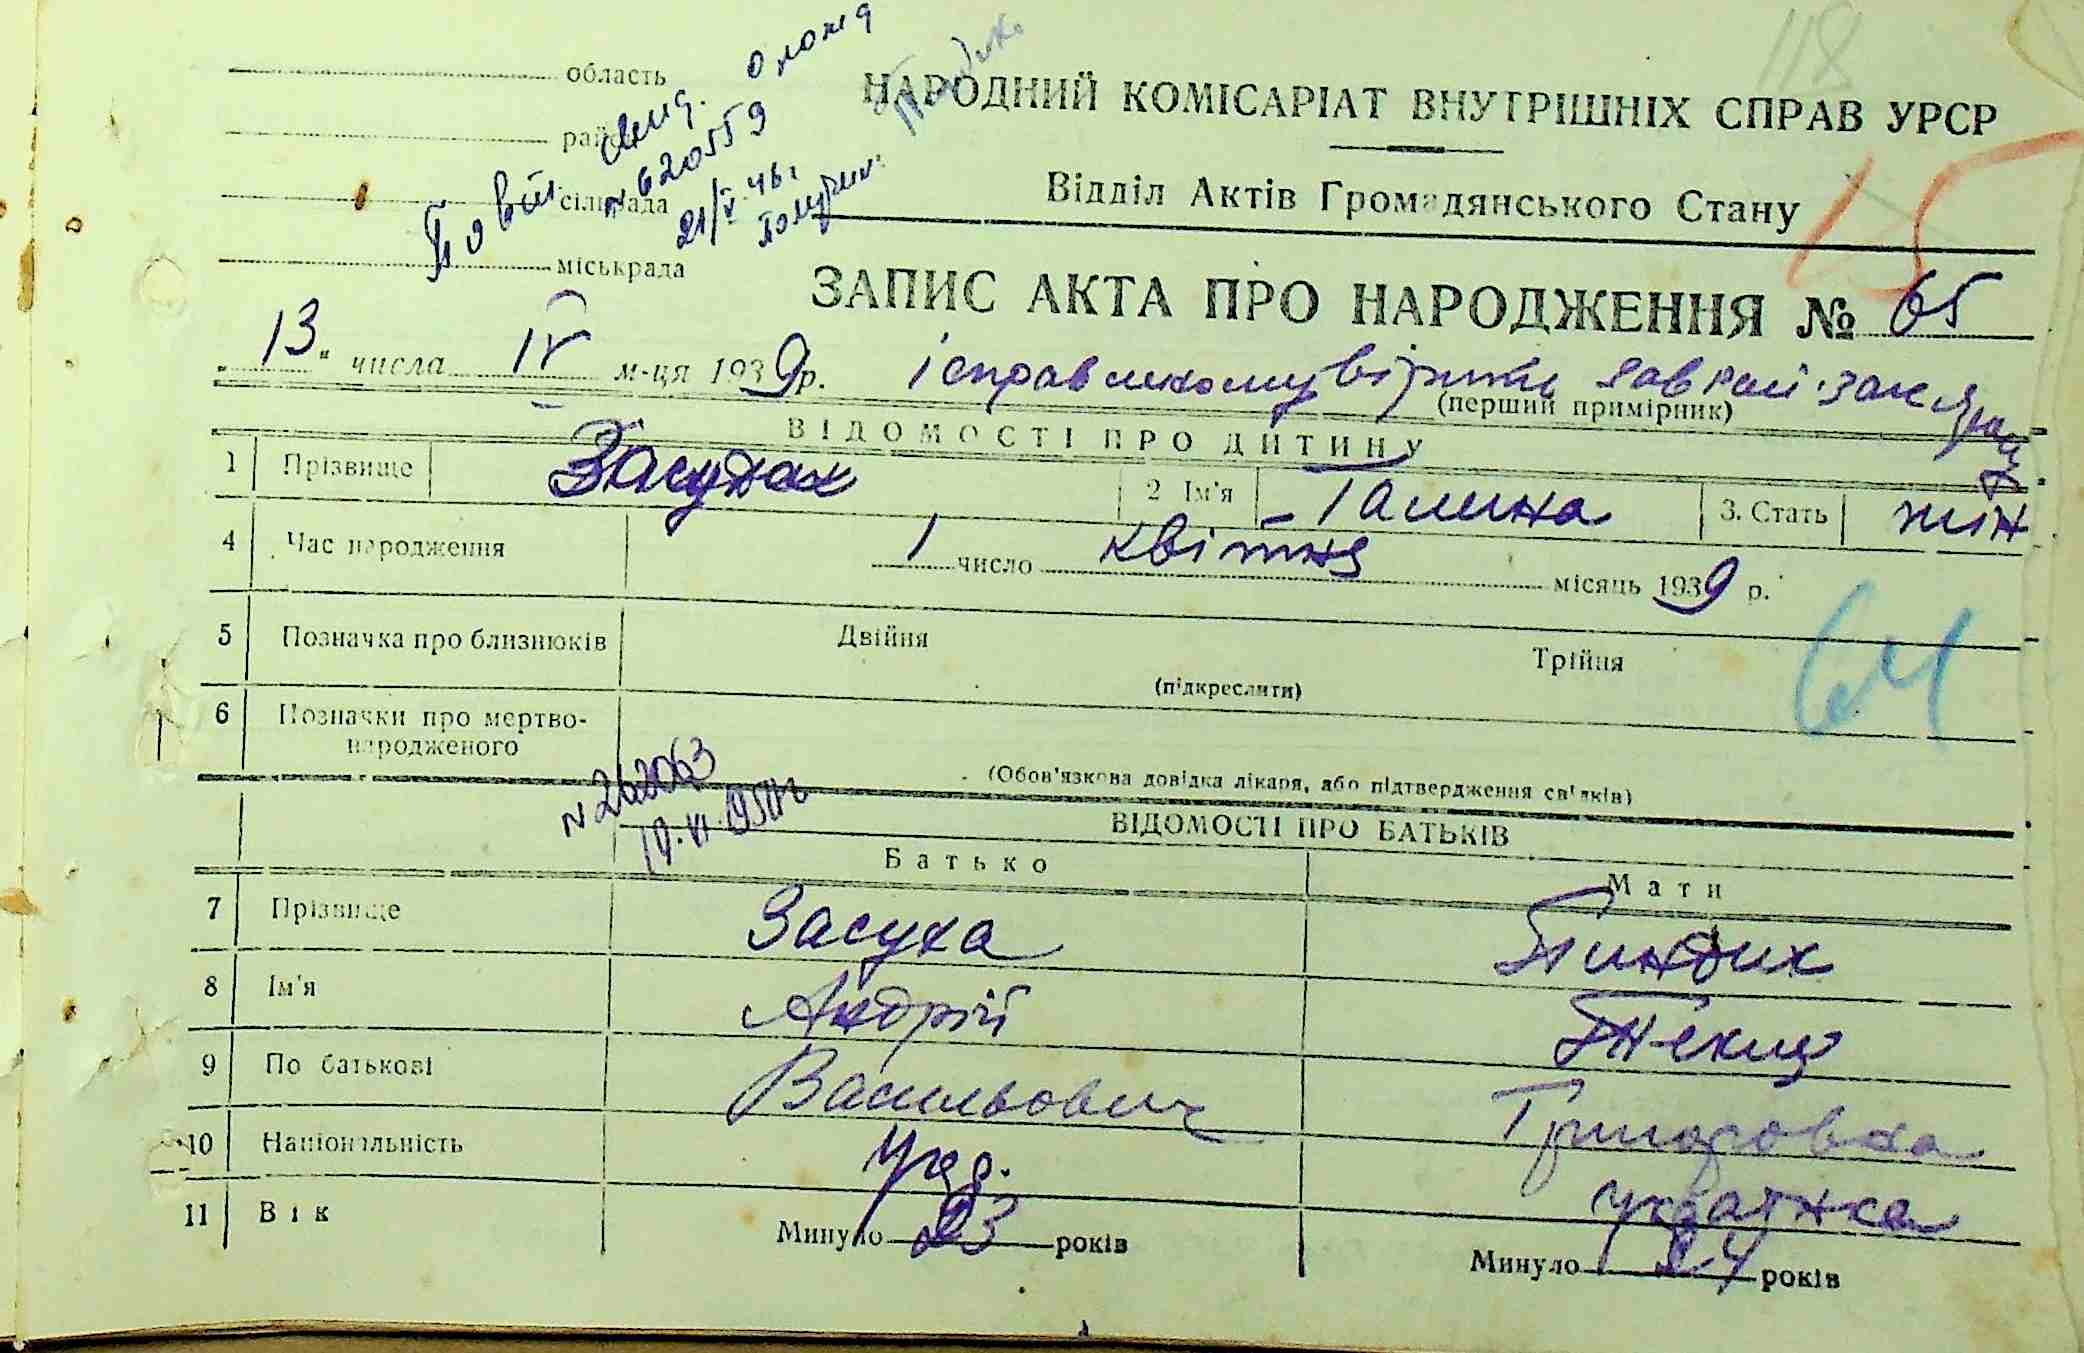 118
область
район
сільрада
міськрада
Повт. свид. 
№ 620559
21/V 46 г
НАРОДНИЙ КОМІСАРІАТ ВНУТРІШНІХ СПРАВ УРСР
Відділ Актів Громадянського Стану
15
ЗАПИС АКТА ПРО НАРОДЖЕННЯ № 65
„13“ числа IV м-ця 1939 р.
(перший примірник)
ВІДОМОСТІ ПРО ДИТИНУ
1 Прізвище Засуха 2 Ім'я Галина 3. Стать жін
4 Час народження 1 число квітня місяць 1939 р.
5 Позначка про близнюків Двійня Трійня
(підкреслити)
64
6 Позначки про мертво-
народженого
(Обов'язкова довідка лікаря, або підтвердження свідків)
N 262063
ВІДОМОСТІ ПРО БАТЬКІВ
Батько Мати
7 Прізвище Засуха Пиндик
8 Ім'я Андрій
9 По батькові Васильович Григоровна
10 Національність Укр. українка
11 Вік Минуло 23 років Минуло 24 років